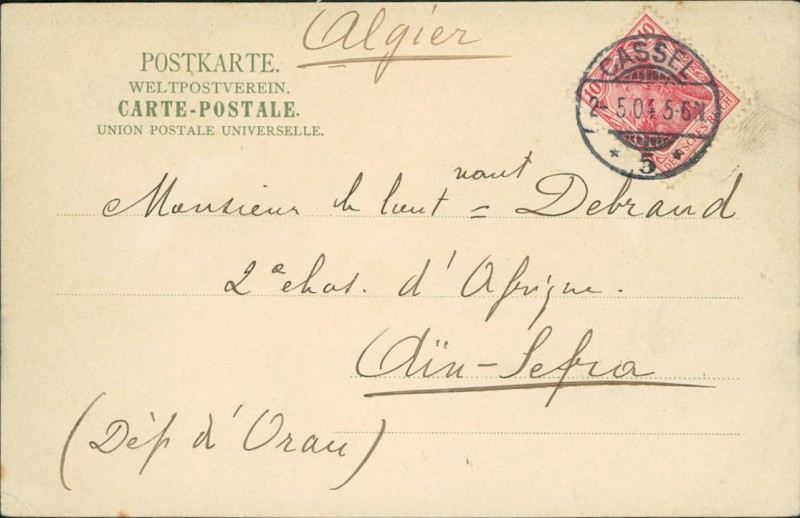 Algier
POSTKARTE.
WELTPOSTVEREIN.
CARTE-POSTALE.
UNION POSTALE UNIVERSELLE.
CASSEL
2-5.04.5-6N
* 5 *
10
DEUTSCHES REICH
nant
Monsieur le lieut = Debrand
2e chas. d'Afrique.
Aïn-Sefra
(Dép d'Oran)